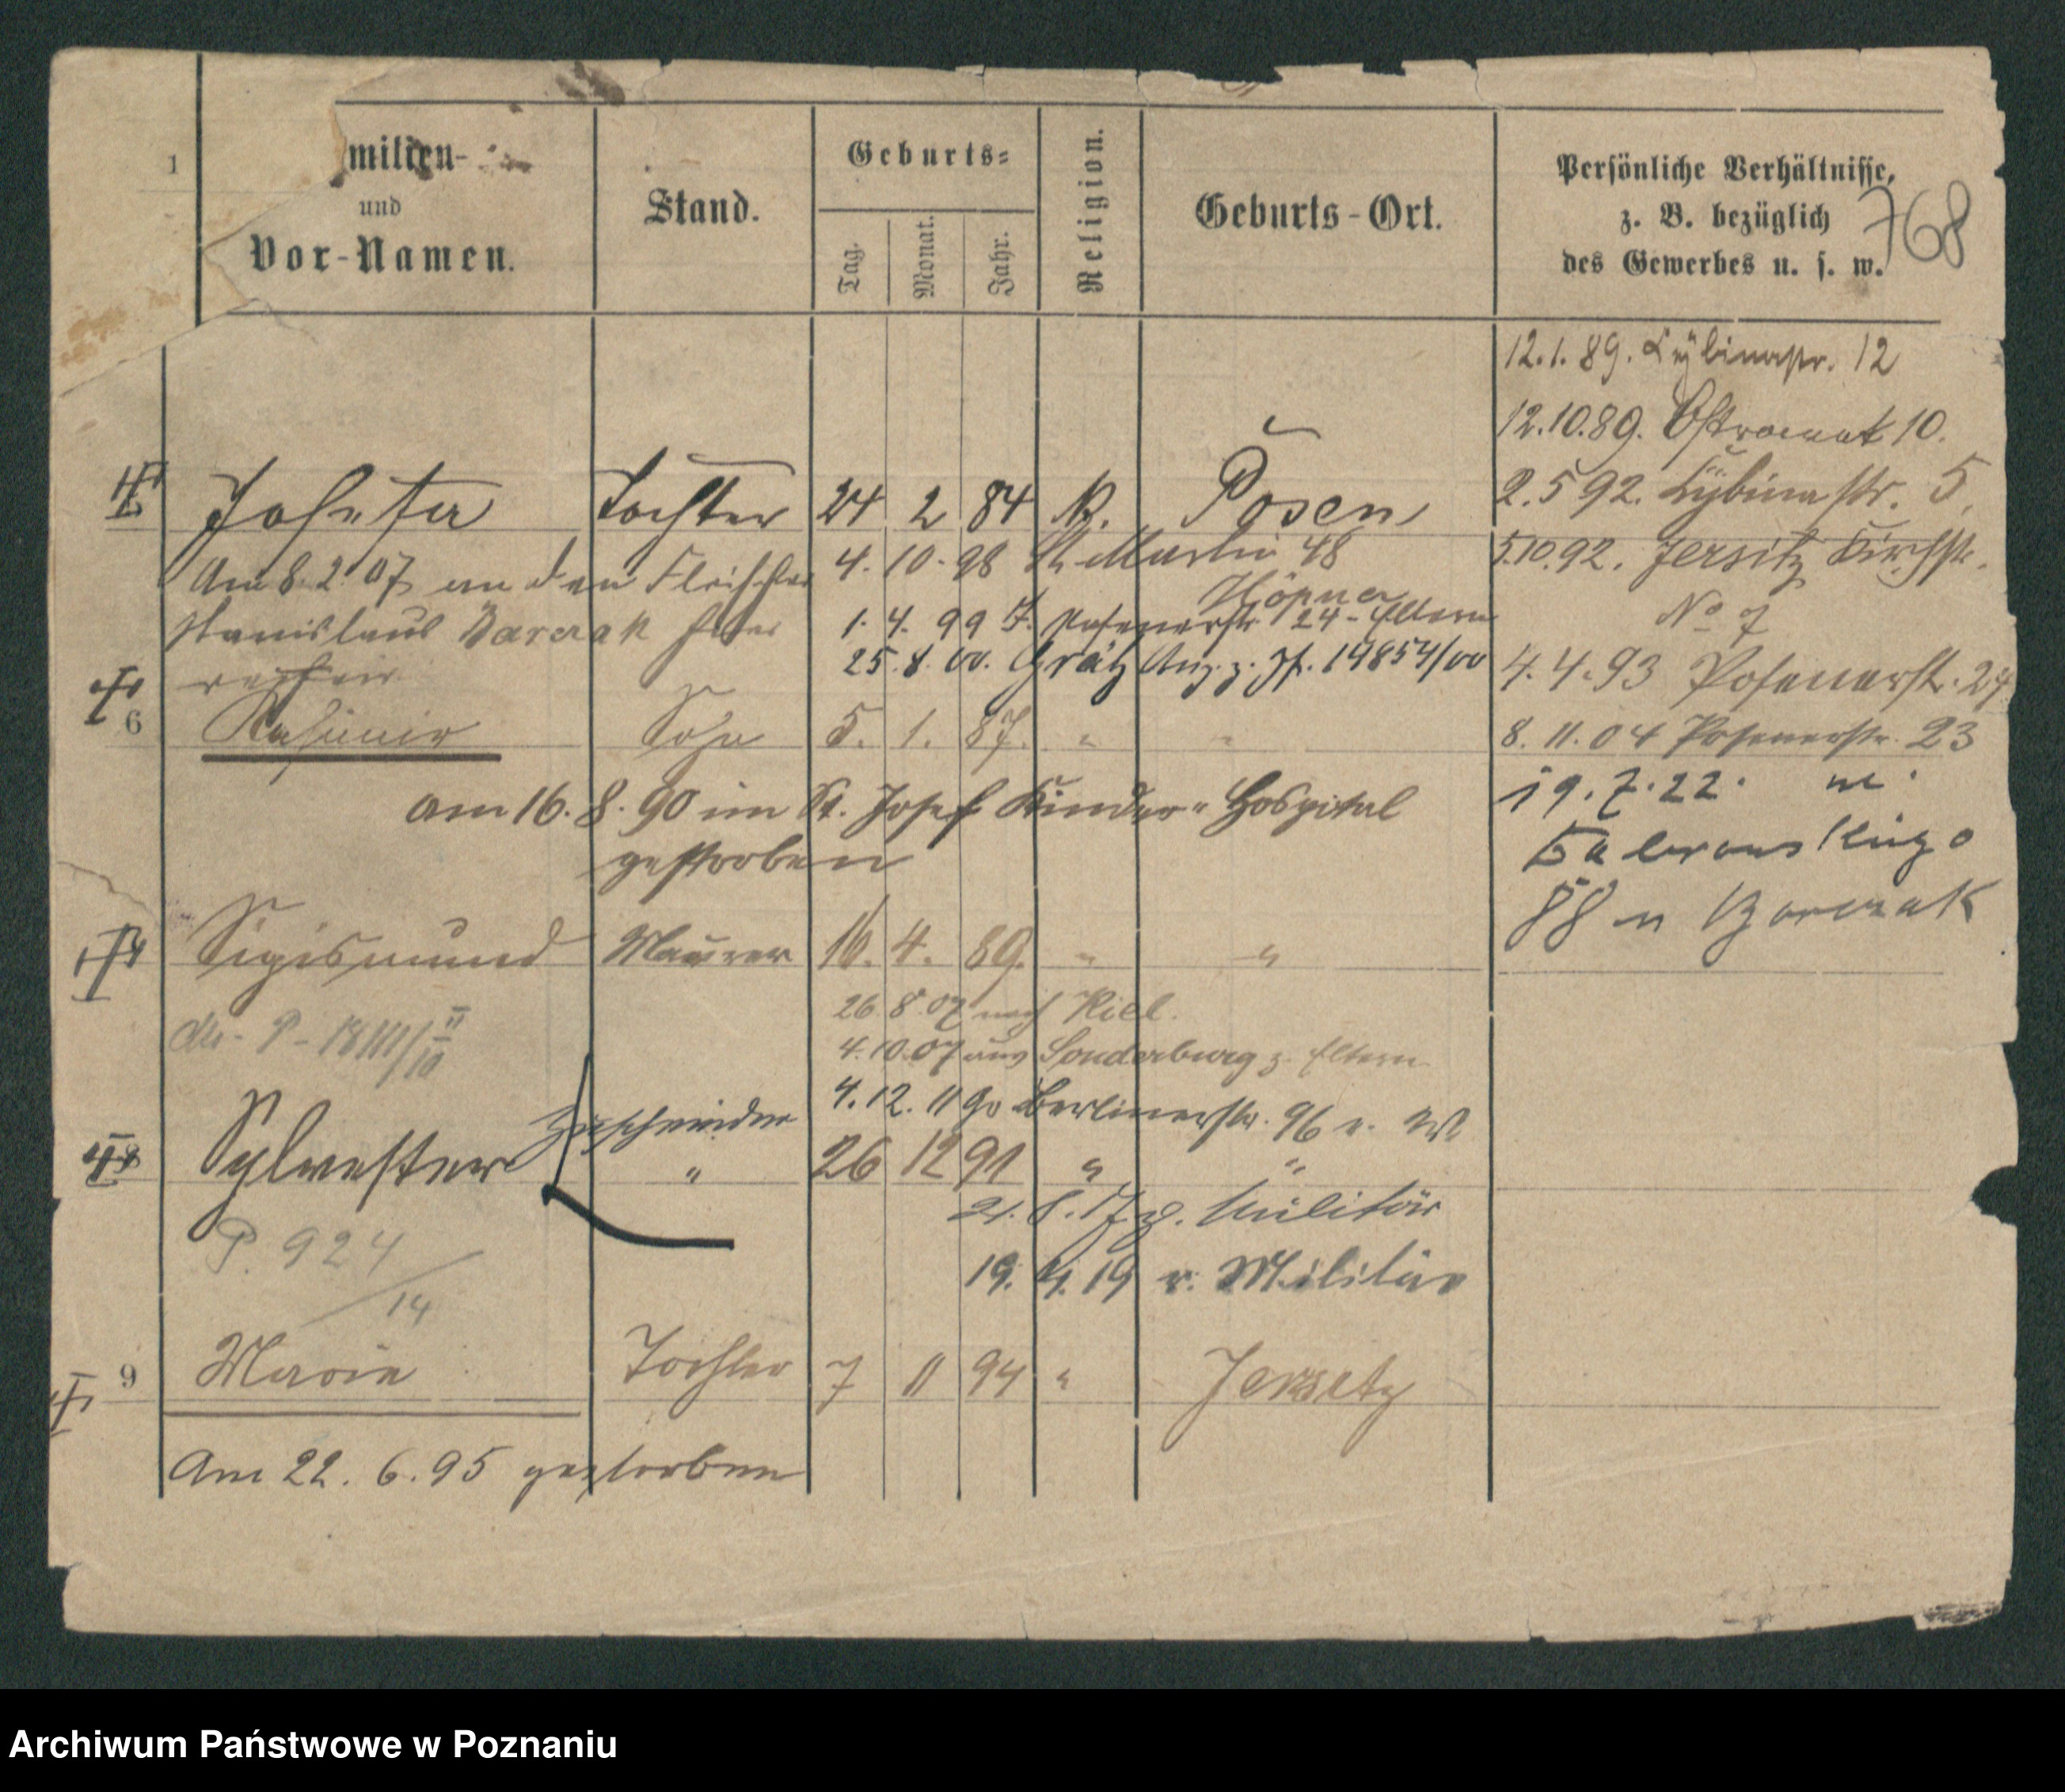 1
milien-
und
Vor-Namen.
Stand.
Geburts-
Tag.
Monat.
Jahr.
Religion.
Geburts-Ort.
Persönliche Verhältnisse,
z. B. bezüglich
des Gewerbes u. s. w.
768
12.1.89. Cybinastr. 12
12.10.89. Ostrowek 10.
2.5 92. Cybinastr. 5,
5.10.92. Jersitz Kirchstr.
No 7
4.4.93 Posenerstr. 24
8.11.04 Posenerstr. 23
19.7.22.
88 Barczak
Josefa Tochter 24 2 84 K. Posen,
Am 8.2.07 an den Fleischer
Stanislaus Barczak hier
verheir
4. 10. 98 St. Martin 48
Höpner
1. 4. 99 Posenerstr 24 - Eltern
25. 8. 00. Grätz 14854/00
6 Kasimir Sohn 5. 1. 87. " "
am 16. 8. 90 im St. Josef Kinder-Hospital
gestorben
Sigismund Maurer 16. 4. 89. " "
26. 8. 07 nach Kiel.
4.10.07 aus Sonderburg z. Eltern
4. 12. 11 Berlinerstr. 96
Zuschneider
Sylvester " 26 12 91 " "
21. 8. 17 z. Militär
P. 924/14
19. 4. 19 v. Militär
9 Maria Tochter 7 11 94 " Jersitz
Am 22. 6. 95 gestorben
Archiwum Państwowe w Poznaniu